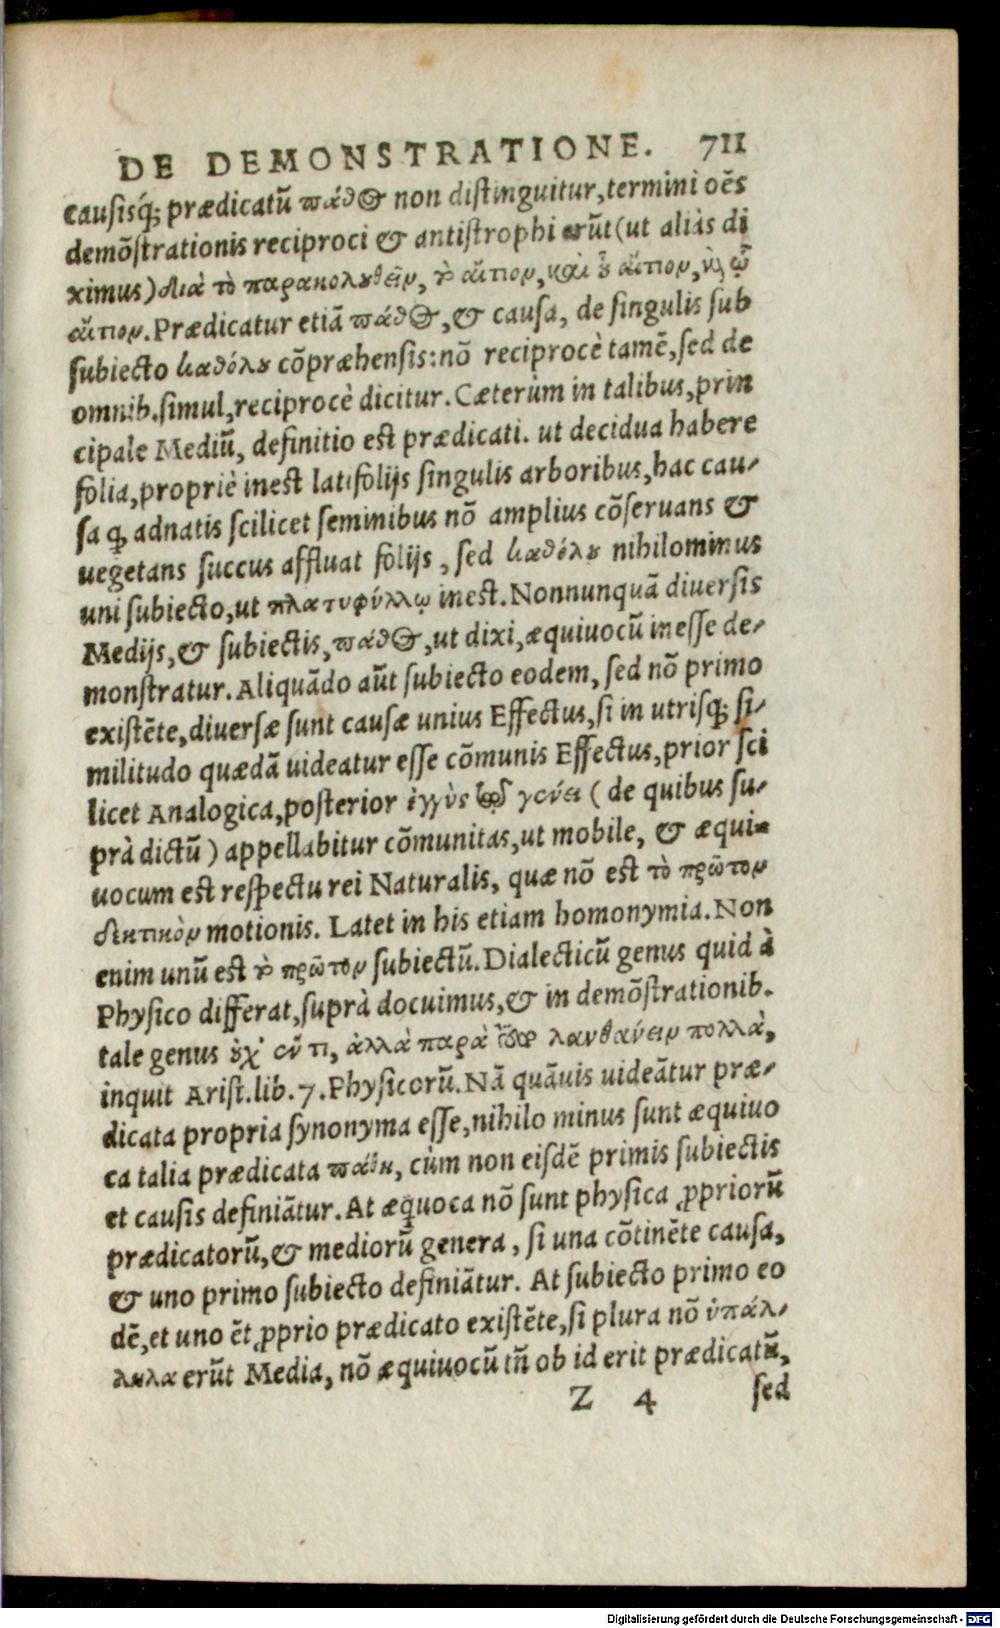 DE DEMONSTRATIONE. 711
causisq́; prædicatū πάθος non distinguitur, termini oēs
demōstrationis reciproci & antistrophi erūt (ut aliàs di
ximus) διὰ τὸ παρακολουθεῖν, τὸ αἴτιον, καὶ οὗ αἴτιον, καὶ ᾧ
αἴτιον. Prædicatur etiā πάθος, & causa, de singulis sub
subiecto καθόλου cōpræhensis: nō reciprocè tamē, sed de
omnib. simul, reciprocè dicitur. Cæterùm in talibus, prin
cipale Mediū, definitio est prædicati. ut decidua habere
folia, propriè inest latifolijs singulis arboribus, hac cau-
sa ꝙ adnatis scilicet seminibus nō amplius cōseruans &
uegetans succus affluat folijs, sed καθόλου nihilominus
uni subiecto, ut πλατυφύλλῳ inest. Nonnunquā diuersis
Medijs, & subiectis, πάθος, ut dixi, æquiuocū inesse de-
monstratur. Aliquādo aūt subiecto eodem, sed nō primo
existēte, diuersæ sunt causæ unius Effectus, si in utrisq́; si-
militudo quædā uideatur esse cōmunis Effectus, prior sci
licet Analogica, posterior ἐγγὺς τῷ γένει (de quibus su-
prà dictū) appellabitur cōmunitas, ut mobile, & æqui-
uocum est respectu rei Naturalis, quæ nō est τὸ πρῶτον
δεκτικὸν motionis. Latet in his etiam homonymia. Non
enim unū est τὸ πρῶτον subiectū. Dialecticū genus quid à
Physico differat, suprà docuimus, & in demōstrationib.
tale genus οὐχ' ἕν τι, ἀλλὰ παρὰ τοῦτο λανθάνειν πολλὰ,
inquit Arist. lib. 7. Physicorū. Nā quāuis uideātur præ-
dicata propria synonyma esse, nihilo minus sunt æquiuo
ca talia prædicata πάθη, cùm non eisdē primis subiectis
et causis definiātur. At æquoca nō sunt physica ꝓpriorū
prædicatorū, & mediorū genera, si una cōtinēte causa,
& uno primo subiecto definiātur. At subiecto primo eo
dē, et uno ēt ꝓprio prædicato existēte, si plura nō ὑπάλ-
ληλα erūt Media, nō æquiuocū tñ ob id erit prædicatū,
Z 4 sed
Digitalisierung gefördert durch die Deutsche Forschungsgemeinschaft - DFG